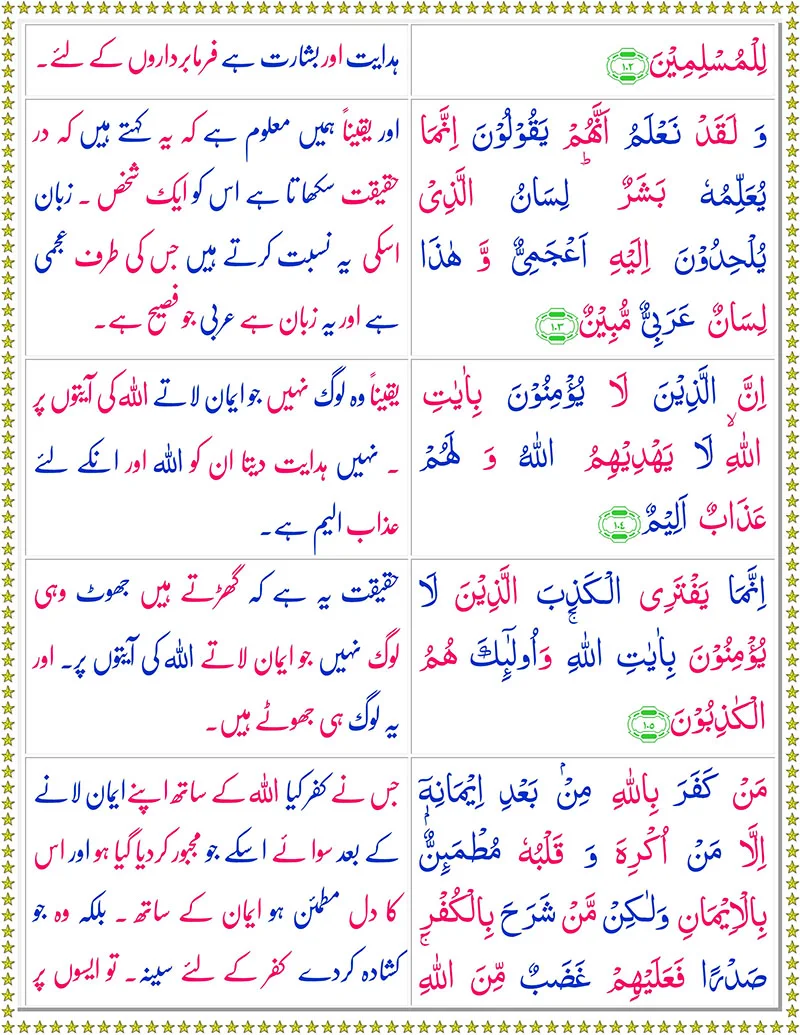 لِلْمُسْلِمِيْنَ ۝١٠٢
ہدایت اور بشارت ہے فرمابرداروں کے لئے۔
وَ لَقَدْ نَعْلَمُ اَنَّهُمْ يَقُوْلُوْنَ اِنَّمَا
يُعَلِّمُهٗ بَشَرٌ ؕ لِسَانُ الَّذِىْ
يُلْحِدُوْنَ اِلَيْهِ اَعْجَمِىٌّ وَّ هٰذَا
لِسَانٌ عَرَبِىٌّ مُّبِيْنٌ ۝١٠٣
اور یقیناً ہمیں معلوم ہے کہ یہ کہتے ہیں کہ در
حقیقت سکھا تا ہے اس کو ایک شخص ۔ زبان
اسکی یہ نسبت کرتے ہیں جس کی طرف عجمی
ہے اور یہ زبان ہے عربی جو فصیح ہے۔
اِنَّ الَّذِيْنَ لَا يُؤْمِنُوْنَ بِاٰيٰتِ
اللّٰهِ ۙ لَا يَهْدِيْهِمُ اللّٰهُ وَ لَهُمْ
عَذَابٌ اَلِيْمٌ ۝١٠٤
یقیناً وہ لوگ نہیں جو ایمان لاتے اللہ کی آیتوں پر
۔ نہیں ہدایت دیتا ان کو اللہ اور انکے لئے
عذاب الیم ہے۔
اِنَّمَا يَفْتَرِى الْكَذِبَ الَّذِيْنَ لَا
يُؤْمِنُوْنَ بِاٰيٰتِ اللّٰهِ ۚ وَاُولٰٓئِكَ هُمُ
الْكٰذِبُوْنَ ۝١٠٥
حقیقت یہ ہے کہ گھڑتے ہیں جھوٹ وہی
لوگ نہیں جو ایمان لاتے اللہ کی آیتوں پر۔ اور
یہ لوگ ہی جھوٹے ہیں۔
مَنْ كَفَرَ بِاللّٰهِ مِنْۢ بَعْدِ اِيْمَانِهٖۤ
اِلَّا مَنْ اُكْرِهَ وَ قَلْبُهٗ مُطْمَٮِٕنٌّۢ
بِالْاِيْمَانِ وَلٰـكِنْ مَّنْ شَرَحَ بِالْكُفْرِ
صَدْرًا فَعَلَيْهِمْ غَضَبٌ مِّنَ اللّٰهِ ۚ
جس نے کفر کیا اللہ کے ساتھ اپنے ایمان لانے
کے بعد سوائے اسکے جو مجبور کردیا گیا ہو اور اس
کا دل مطمئن ہو ایمان کے ساتھ ۔ بلکہ وہ جو
کشادہ کردے کفر کے لئے سینہ۔ تو ایسوں پر